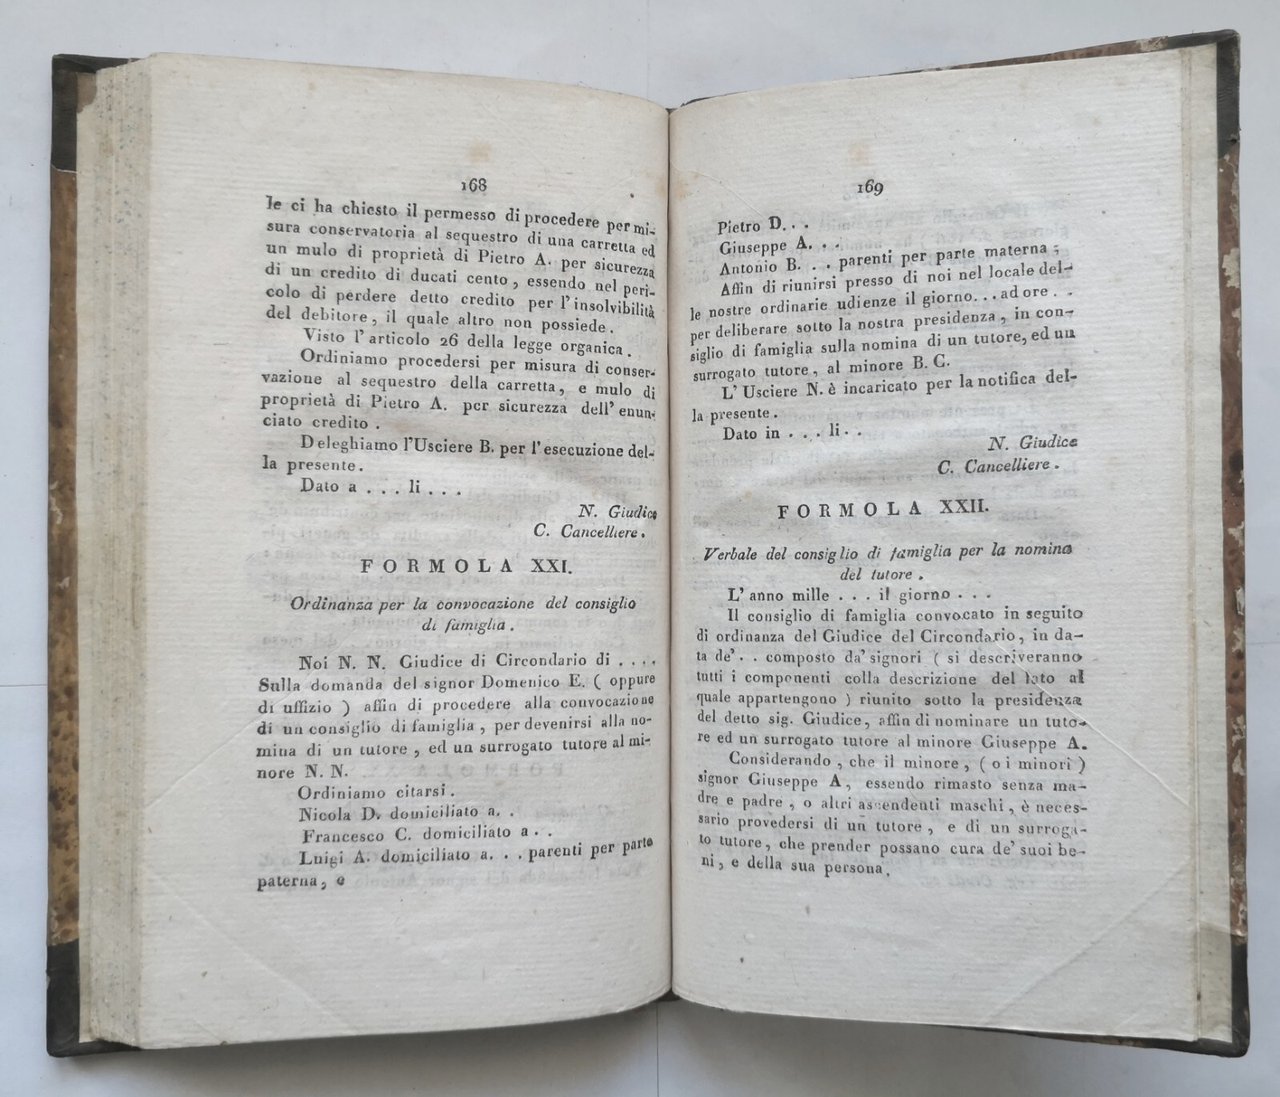 168
le ci ha chiesto il permesso di procedere per mi-
sura conservatoria al sequestro di una carretta ed
un mulo di proprietà di Pietro A. per sicurezza
di un credito di ducati cento, essendo nel peri-
colo di perdere detto credito per l'insolvibilità
del debitore, il quale altro non possiede.
Visto l'articolo 26 della legge organica.
Ordiniamo procedersi per misura di conser-
vazione al sequestro della carretta, e mulo di
proprietà di Pietro A. per sicurezza dell'enun-
ciato credito.
Deleghiamo l'Usciere B. per l'esecuzione del-
la presente.
Dato a . . . li . . .
N. Giudice
C. Cancelliere.
FORMOLA XXI.
Ordinanza per la convocazione del consiglio
di famiglia.
Noi N. N. Giudice di Circondario di . . . .
Sulla domanda del signor Domenico E. ( oppure
di uffizio ) affin di procedere alla convocazione
di un consiglio di famiglia, per devenirsi alla no-
mina di un tutore, ed un surrogato tutore al mi-
nore N. N.
Ordiniamo citarsi.
Nicola D. domiciliato a. .
Francesco C. domiciliato a . .
Luigi A. domiciliato a. . . parenti per parte
paterna, e
169
Pietro D. . .
Giuseppe A. . .
Antonio B. . . parenti per parte materna;
Affin di riunirsi presso di noi nel locale del-
le nostre ordinarie udienze il giorno. . . ad ore . .
per deliberare sotto la nostra presidenza, in con-
siglio di famiglia sulla nomina di un tutore, ed un
surrogato tutore, al minore B. C.
L'Usciere N. è incaricato per la notifica del-
la presente.
Dato in . . . li . .
N. Giudice
C. Cancelliere.
FORMOLA XXII.
Verbale del consiglio di famiglia per la nomina
del tutore.
L'anno mille . . . il giorno . . .
Il consiglio di famiglia convocato in seguito
di ordinanza del Giudice del Circondario, in da-
ta de' . . composto da' signori ( si descriveranno
tutti i componenti colla descrizione del lato al
quale appartengono ) riunito sotto la presidenza
del detto sig. Giudice, affin di nominare un tuto-
re ed un surrogato tutore al minore Giuseppe A.
Considerando, che il minore, ( o i minori )
signor Giuseppe A, essendo rimasto senza ma-
dre e padre, o altri ascendenti maschi, è neces-
sario provedersi di un tutore, e di un surroga-
to tutore, che prender possano cura de' suoi be-
ni, e della sua persona.